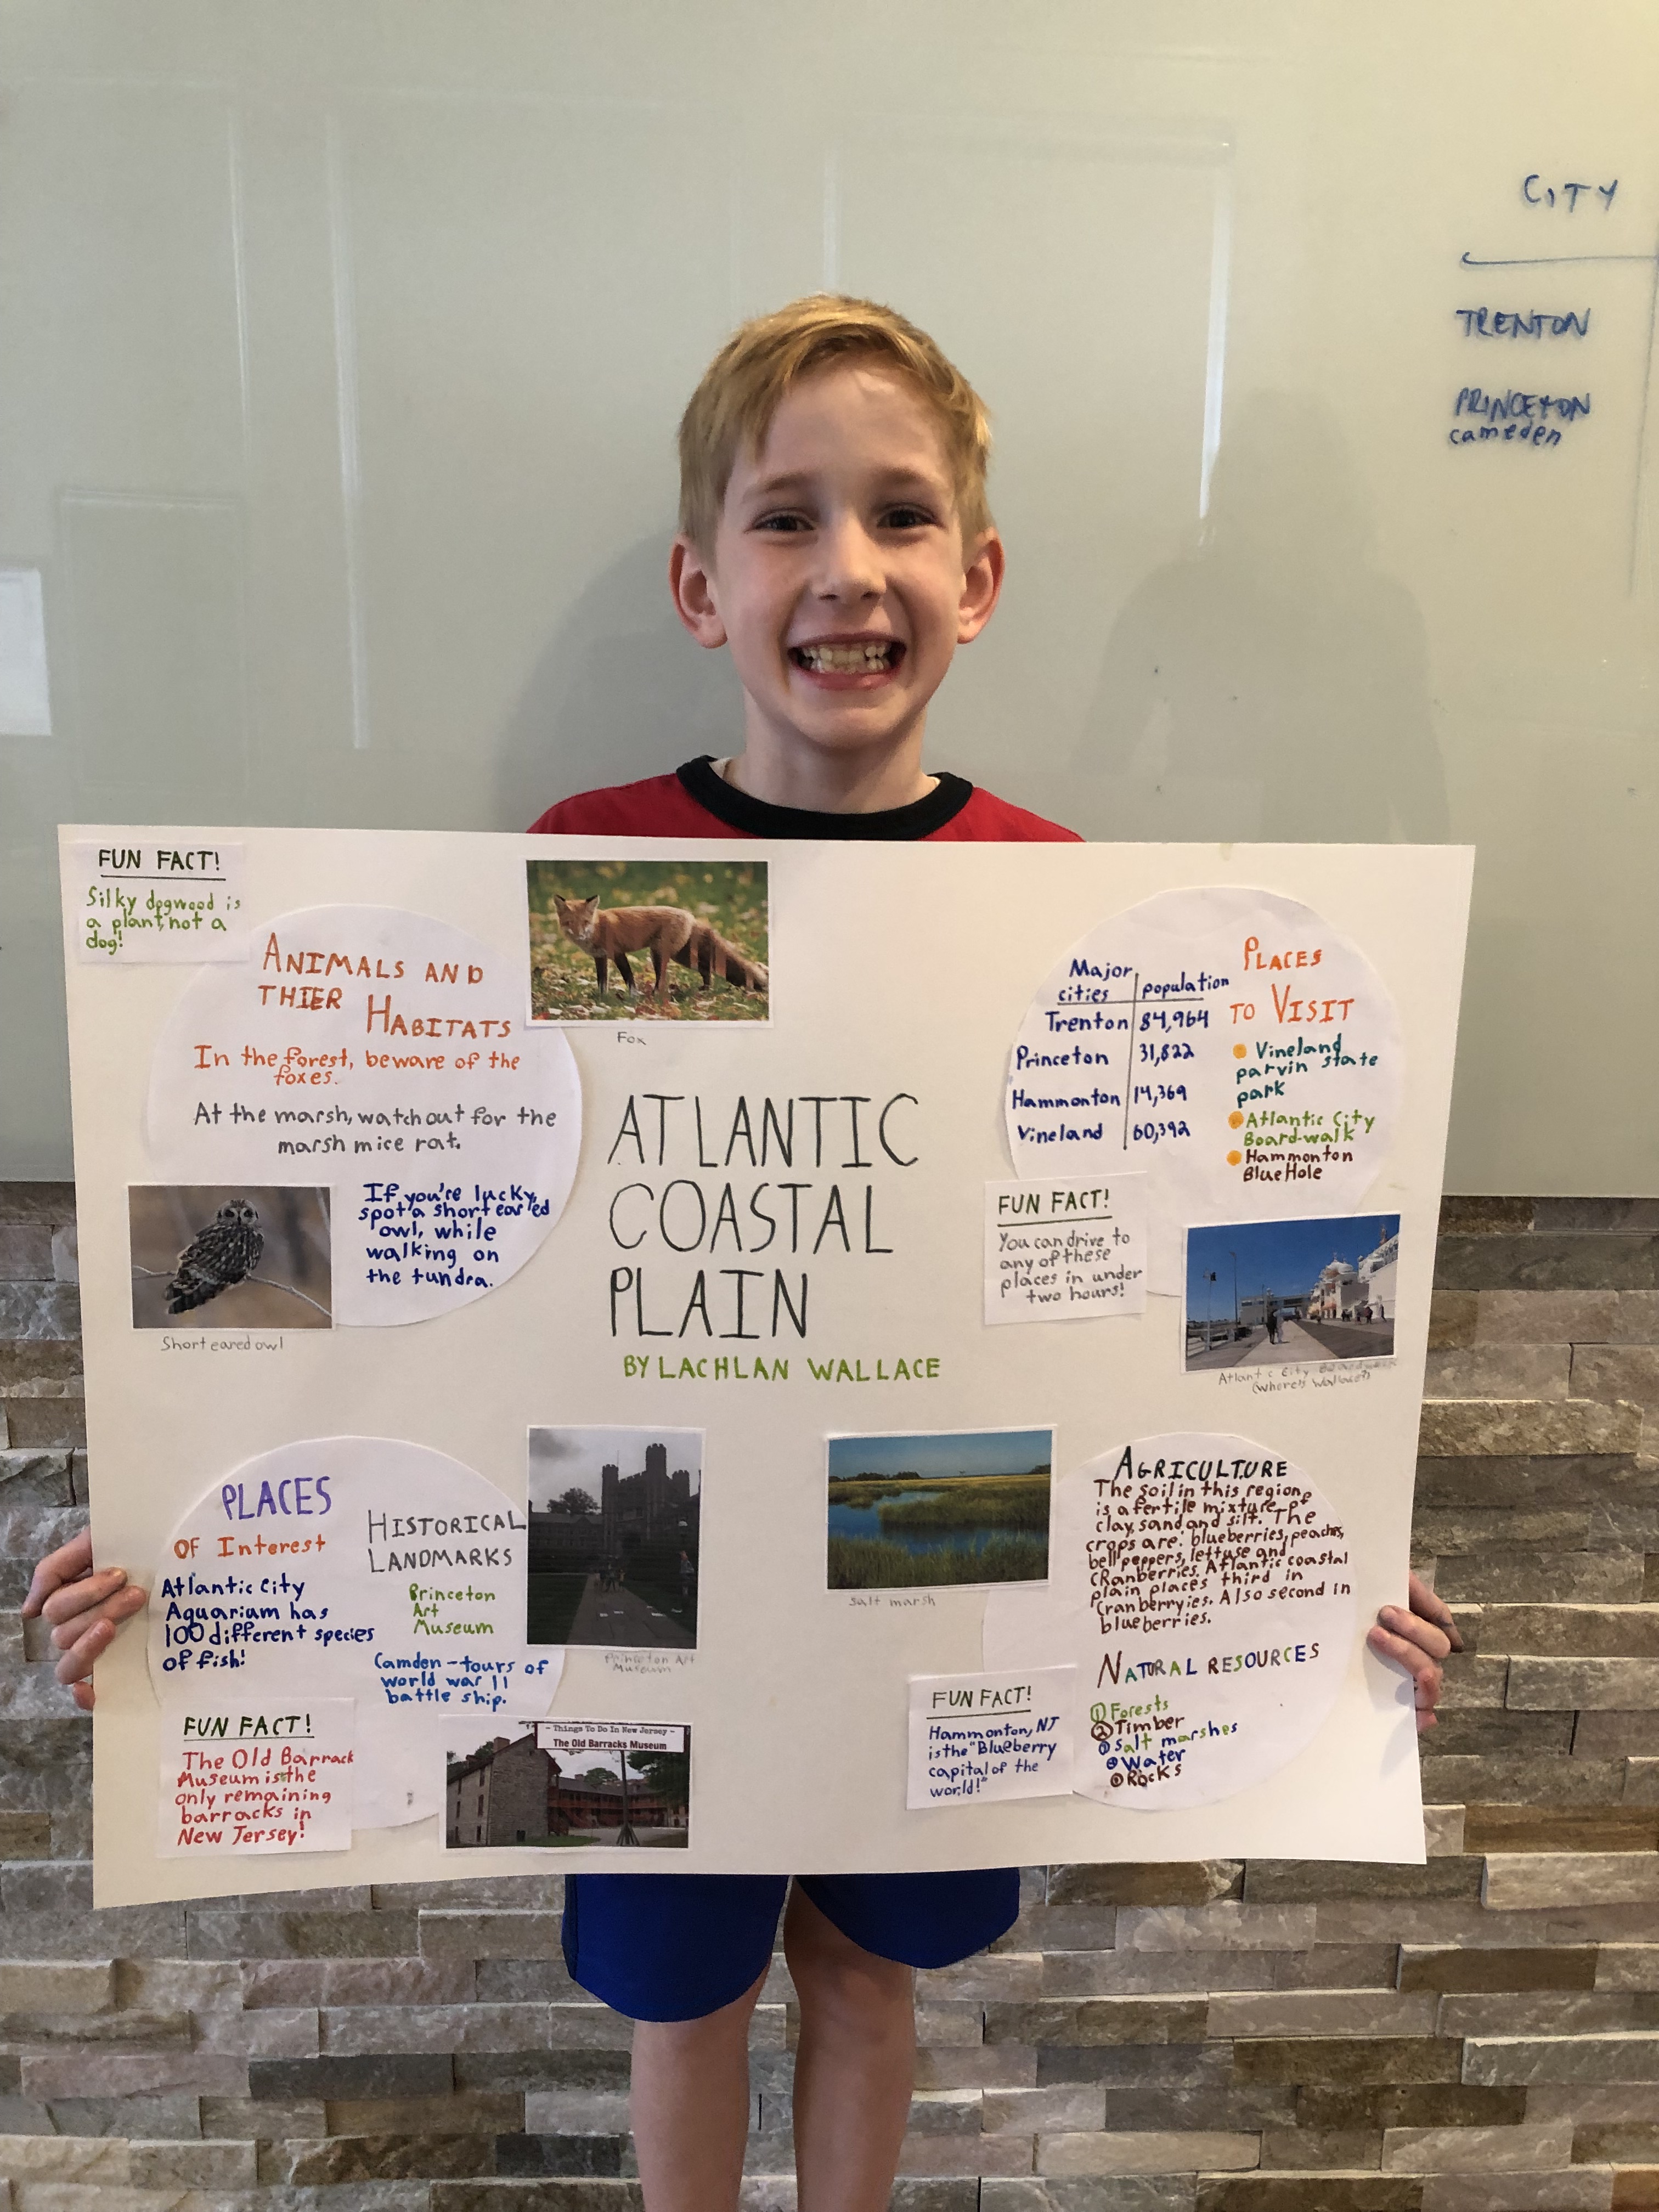 CITY
TRENTON
PRINCETON
cameden
FUN FACT!
Silky dogwood is
a plant, not a
dog!
ANIMALS AND
THIER HABITATS
In the forest, beware of the
foxes.
At the marsh, watch out for the
marsh mice rat.
If you're lucky,
spot a short eared
owl, while
walking on
the tundra.
Fox
Short eared owl
ATLANTIC
COASTAL
PLAIN
BY LACHLAN WALLACE
Major
cities population
Trenton 84,964
Princeton 31,822
Hammonton 14,369
Vineland 60,392
PLACES
TO VISIT
Vineland
parvin state
park
Atlantic City
Board-walk
Hammonton
Blue Hole
FUN FACT!
You can drive to
any of these
places in under
two hours!
Atlantic City Boardwalk
(where's Wallace?)
PLACES
OF Interest
Atlantic City
Aquarium has
100 different species
of fish!
HISTORICAL
LANDMARKS
Princeton
Art
Museum
Camden-tours of
world war 11
battle ship.
Princeton Art
Museum
FUN FACT!
The Old Barrack
Museum is the
only remaining
barracks in
New Jersey!
- Things To Do In New Jersey -
The Old Barracks Museum
salt marsh
AGRICULTURE
The soil in this region,
is a fertile mixture of
clay, sand and silt. The
crops are: blueberries, peaches,
bell peppers, lettuse and
CRanberries. Atlantic coastal
plain places third in
Cranberryies. Also second in
blueberries.
NATURAL RESOURCES
① Forests
② Timber
③ Salt marshes
④ Water
⑤ Rocks
FUN FACT!
Hammonton, NJ
is the "Blueberry
capital of the
world!"